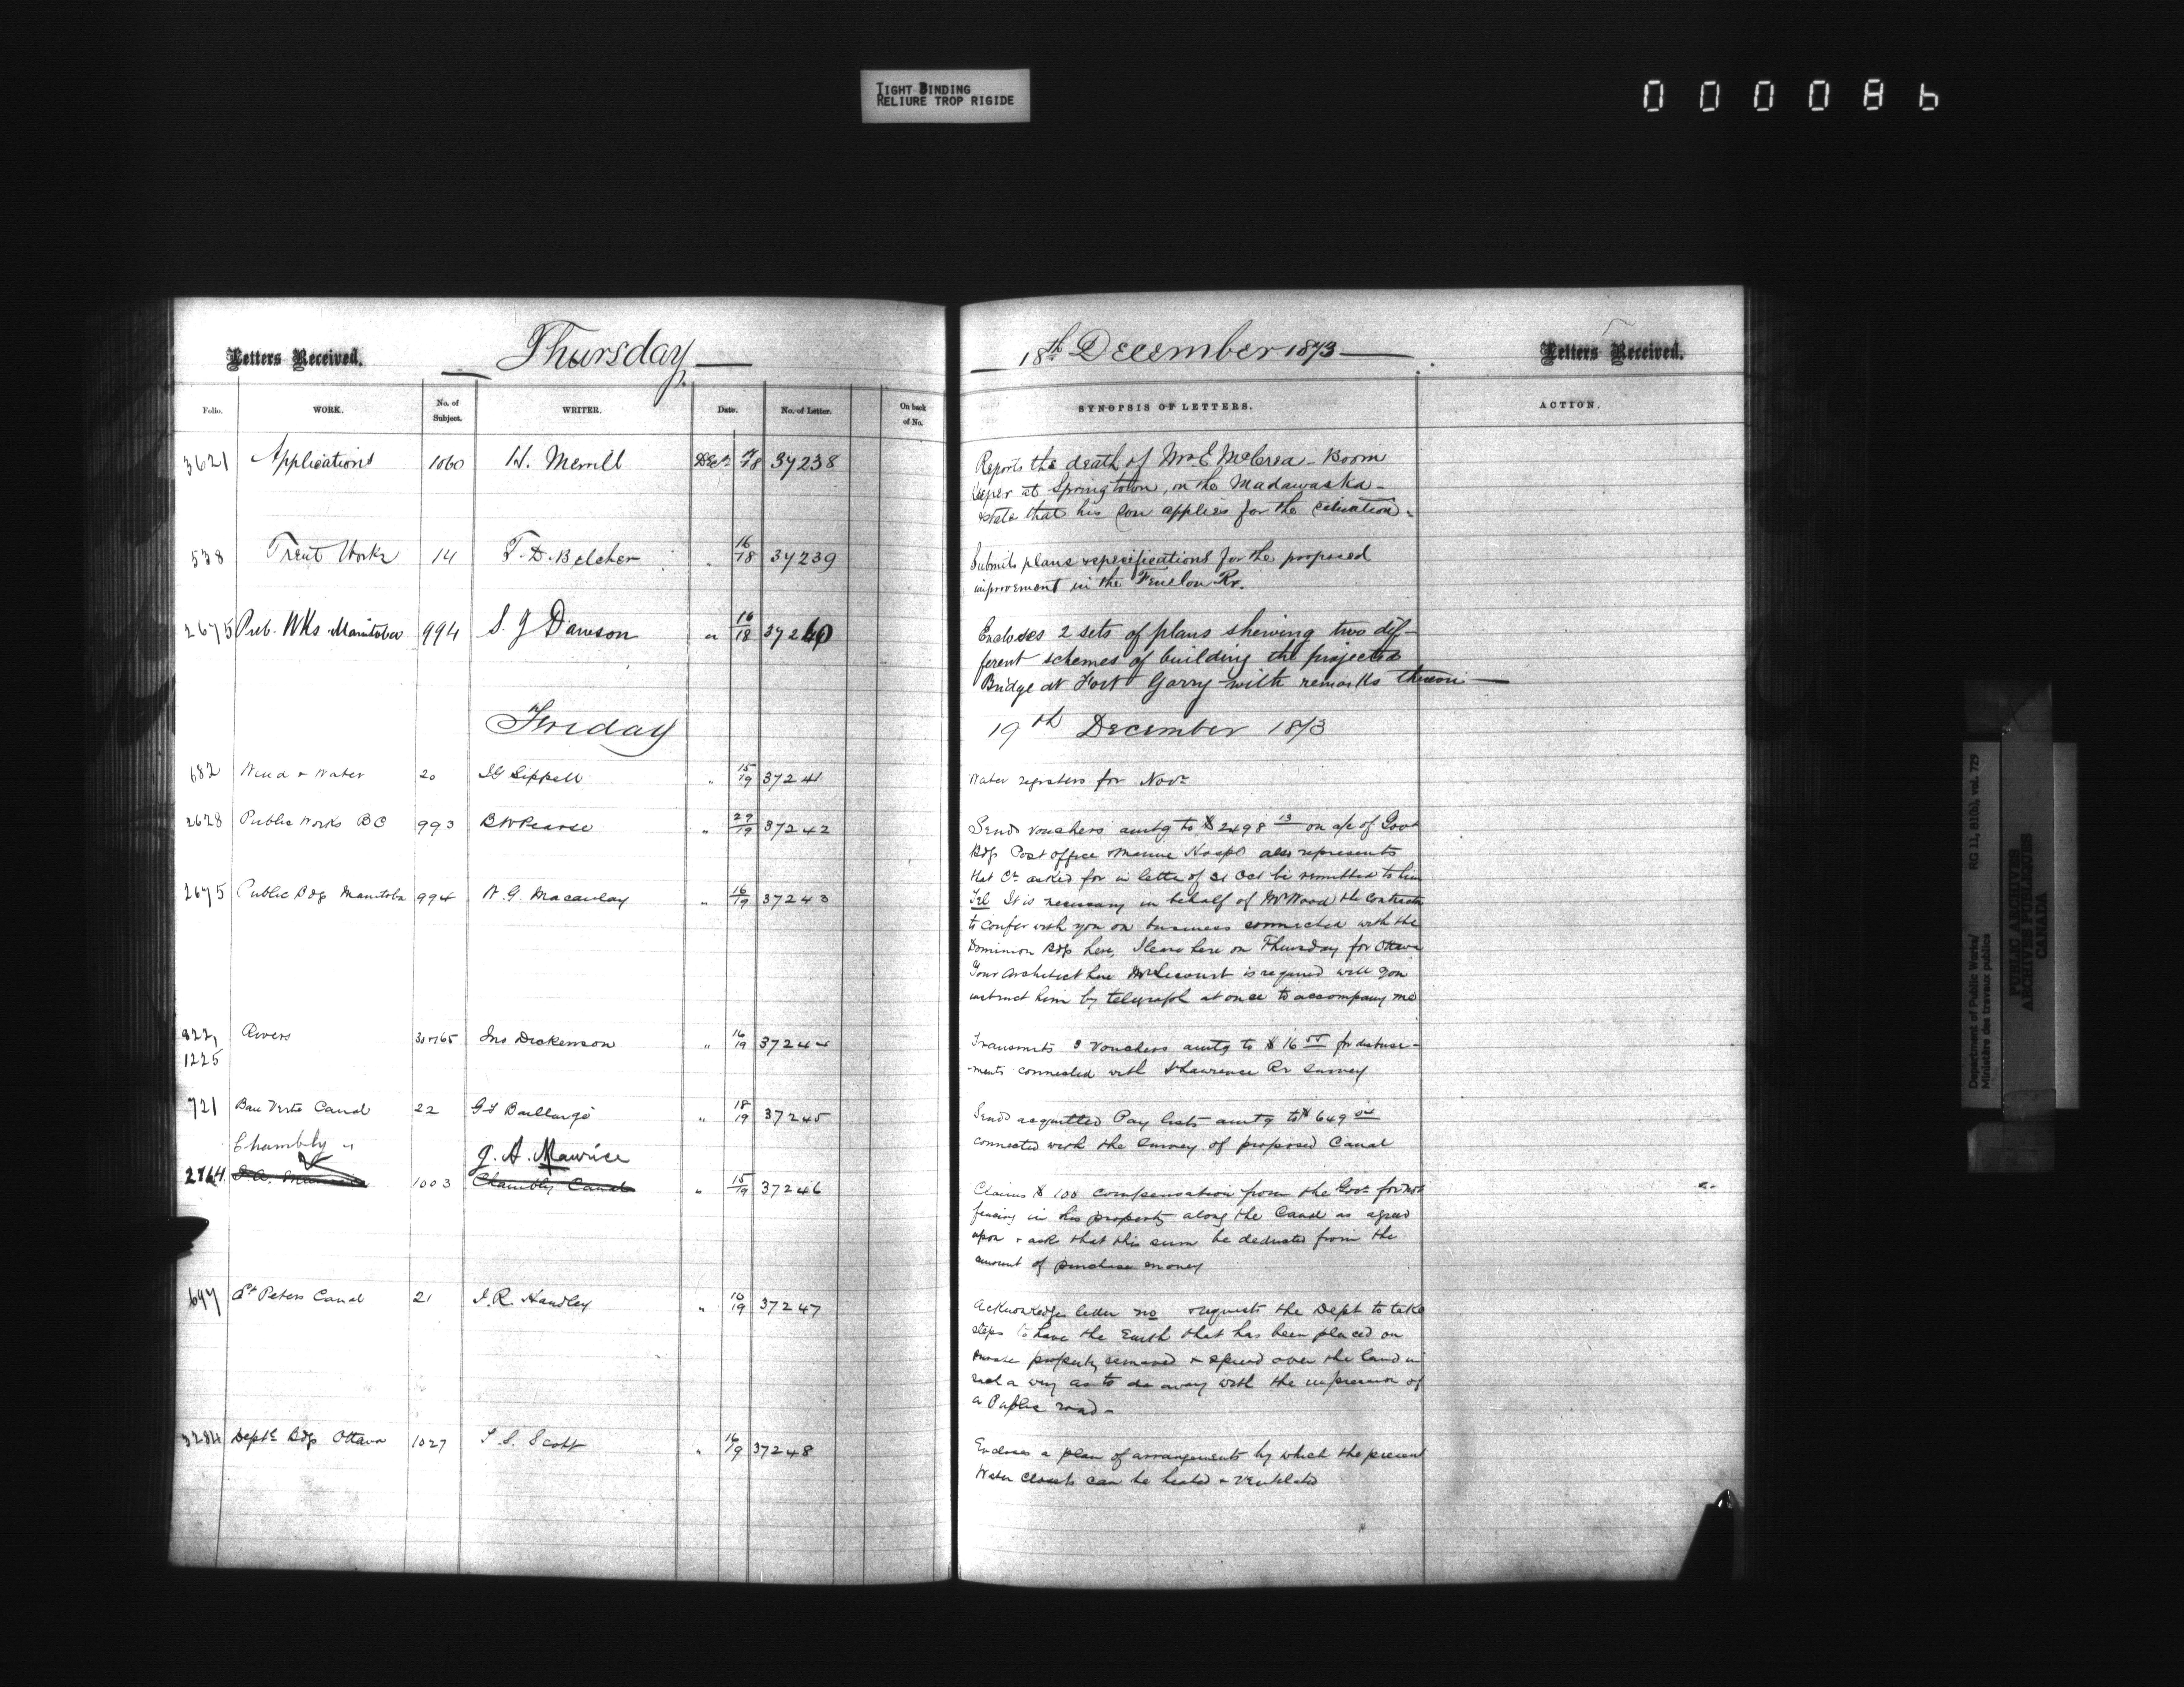 TIGHT BINDING
RELIURE TROP RIGIDE
000086
Letters Received. Thursday 18th December 1873 Letters Received.
Folio. WORK. No. of Subject. WRITER. Date. No. of Letter. On back of No. SYNOPSIS OF LETTERS. ACTION.
3621 Applications 1060 H. Merrill Decr 18 37238 Reports the death of Mr E McCrea - Boom
keeper at Springtown, on the Madawaska -
& state that his son applies for the situation.
538 Trent Works 14 T. D. Belcher " 16/18 37239 Submits plans & specifications for the proposed
improvement in the Fenelon Rr.
2675 Pub. Wks Manitoba 994 S. J Dawson " 16/18 37240 Encloses 2 sets of plans shewing two dif-
ferent schemes of building the projected
Bridge at Fort Garry with remarks thereon
Friday 19th December 1873
682 Wind & Water 20 Sippell " 15/19 37241 Water registers for Novr
2628 Public Works BC 993 B W Pearse " 29/19 37242 Sends vouchers amtg to $2498 13 on a/c of Govt
Bdgs Post Office & Marine Hospl also represents
that Ct asked for in letter of 31 Oct be remitted to him
2675 Public Bdgs Manitoba 994 N. G. Macaulay " 16/19 37243 Tel It is necessary in behalf of Mr Wood the Contractor
to confer with you on business connected with the
Dominion Bdgs here, I leave here on Thursday for Ottawa
Your Architect here Mr Lecourt is required will you
instruct him by telegraph at once to accompany me
822, 1225 Rivers 30 & 765 Jno Dickenson " 16/19 37244 Transmits 3 Vouchers amtg to $16 for disburse-
-ments connected with St Lawrence Rr survey
721 Baie Verte Canal 22 G F Baillargé " 18/19 37245 Sends acquitted Pay lists amtg to $649
connected with the survey of proposed Canal
Chambly " J. A. Maurice
2764 1003 Chambly Canal " 15/19 37246 Claims $100 compensation from the Govt for not
fencing in his property along the Canal as agreed
upon & asks that this sum be deducted from the
amount of purchase money
697 St Peters Canal 21 J. R. Handley " 10/19 37247 Acknowledges letter no & requests the Dept to take
steps to have the Earth that has been placed on
private property removed & spread over the land in
such a way as to do away with the impression of
a Public road -
3284 Deptl Bdgs Ottawa 1027 T. S. Scott " 16/19 37248 Encloses a plan of arrangements by which the present
Water Closets can be heated & Ventilated
Department of Public Works/ RG 11, B1(b), vol. 729
Ministère des travaux publics
PUBLIC ARCHIVES
ARCHIVES PUBLIQUES
CANADA